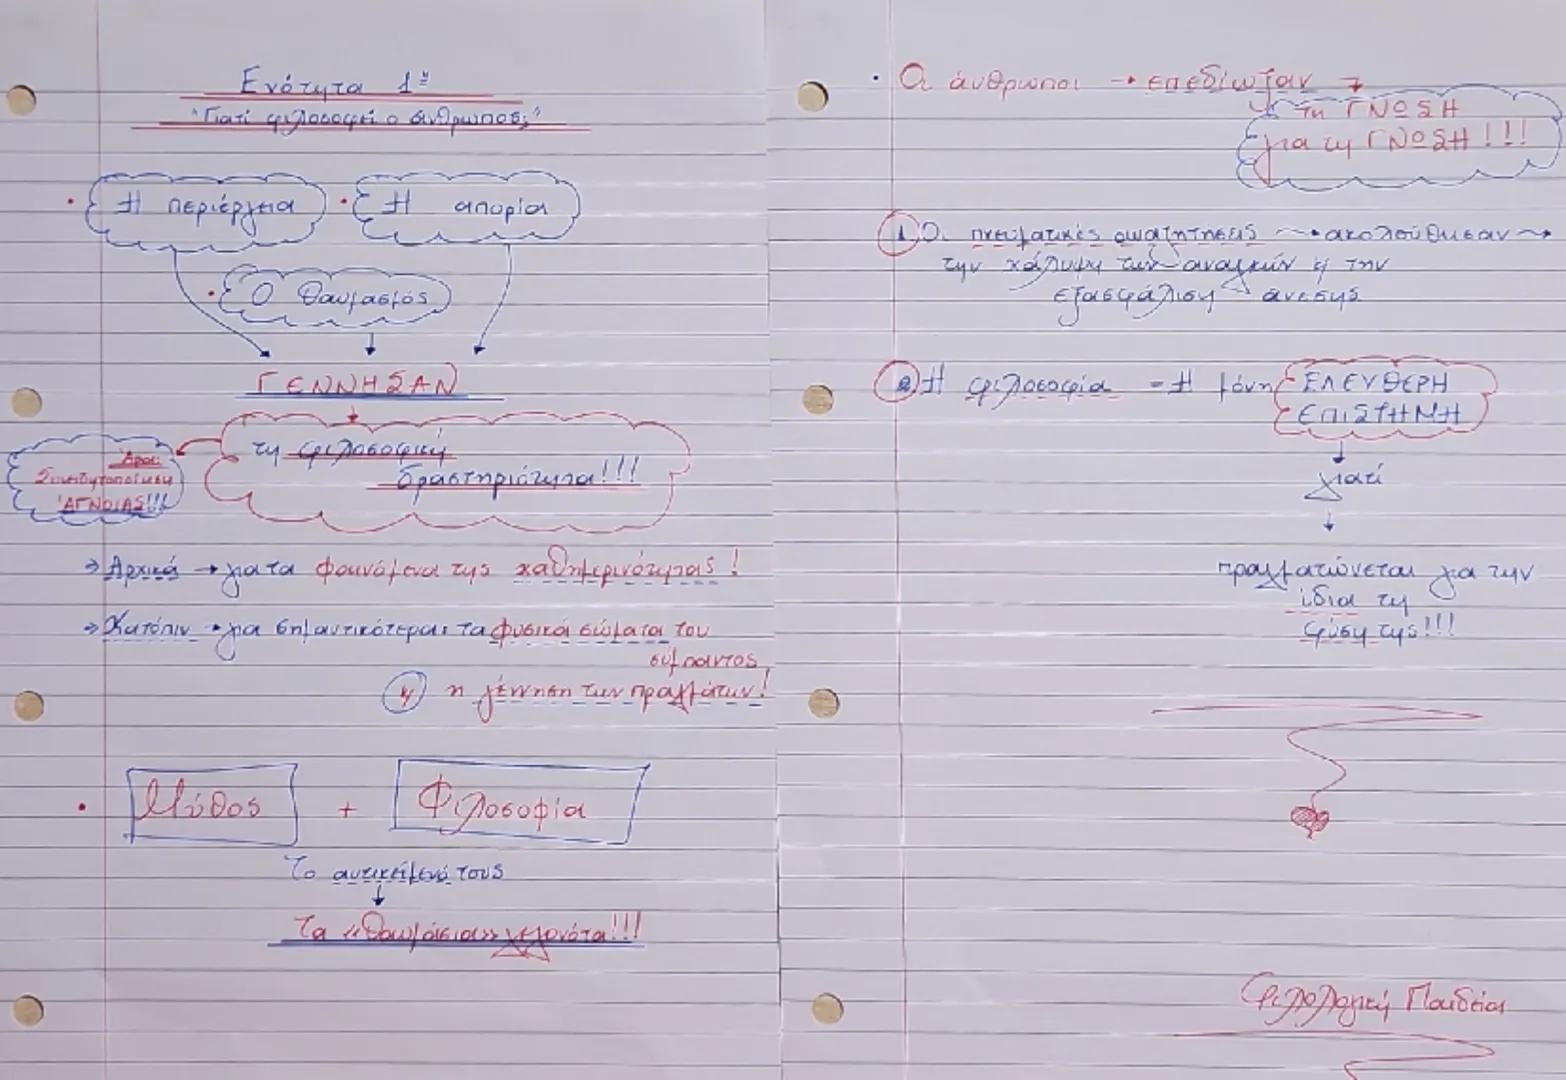 Ενότητα 1η
"Γιατί φιλοσοφεί ο άνθρωπος;"
• Η περιέργεια
• Η απορία
• Ο θαυμασμός
ΓΕΝΝΗΣΑΝ
τη φιλοσοφική
δραστηριότητα!!!
Άρα:
Συνειδητοποίηση
ΆΓΝΟΙΑΣ!!!
→ Αρχικά → για τα φαινόμενα της καθημερινότητας!
→ Κατόπιν → για σημαντικότερα: τα φυσικά σώματα του
σύμπαντος
ή η γέννηση των πραγμάτων!
• Μύθος + Φιλοσοφία
Το αντικείμενό τους
Τα «θαυμάσια» γεγονότα!!!
• Οι άνθρωποι → επεδίωξαν →
τη ΓΝΩΣΗ
για τη ΓΝΩΣΗ!!!
1 Οι πνευματικές αναζητήσεις → ακολούθησαν →
την κάλυψη των αναγκών ή την
εξασφάλιση άνεσης
2 Η φιλοσοφία - Η μόνη ΕΛΕΥΘΕΡΗ
ΕΠΙΣΤΗΜΗ
γιατί
πραγματώνεται για την
ίδια τη
φύση της!!!
Φιλολογική Παιδεία